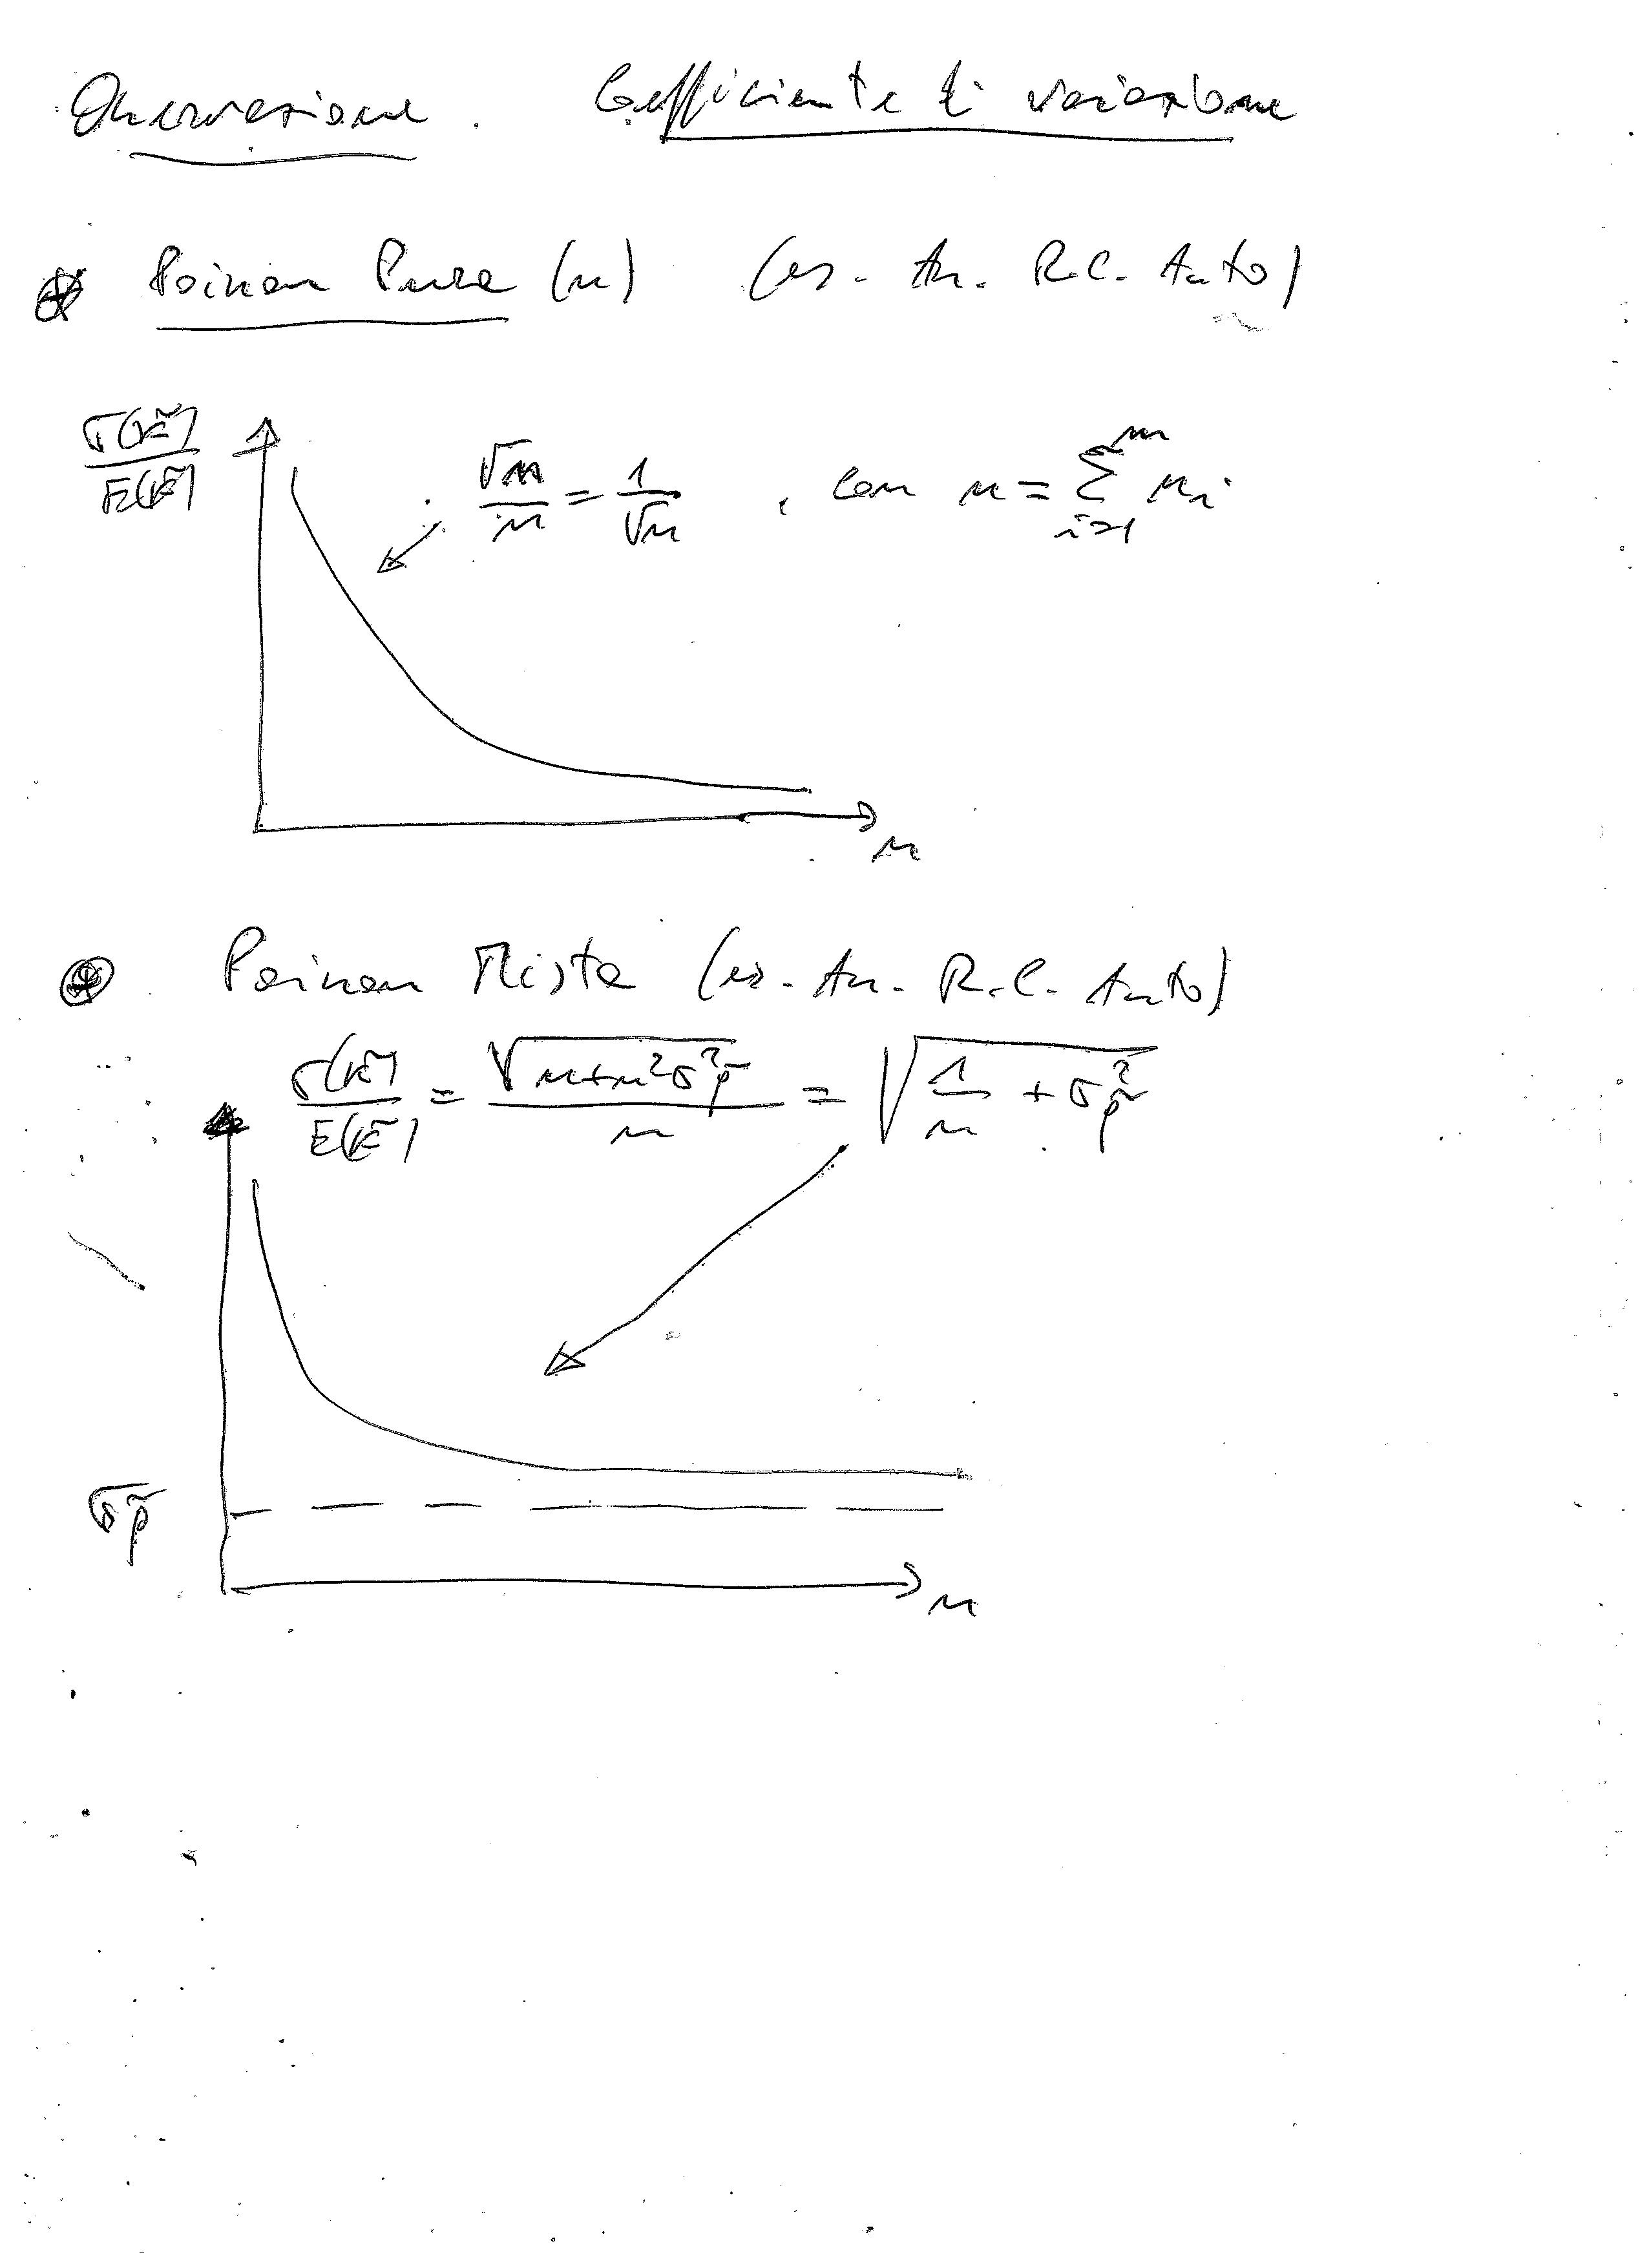 Osservazione. Coefficiente di variazione
Poisson Pura (n) (es. Ass. R.C. Auto)
σ(k̃)/E(k̃)
√n/n = 1/√n , con n = Σ_{i=1}^{m} n_i
n
Poisson Mista (es. Ass. R.C. Auto)
σ(k̃)/E(k̃) = √(n+n²σ²_p̃)/n = √(1/n + σ²_p̃)
σ_p̃
n